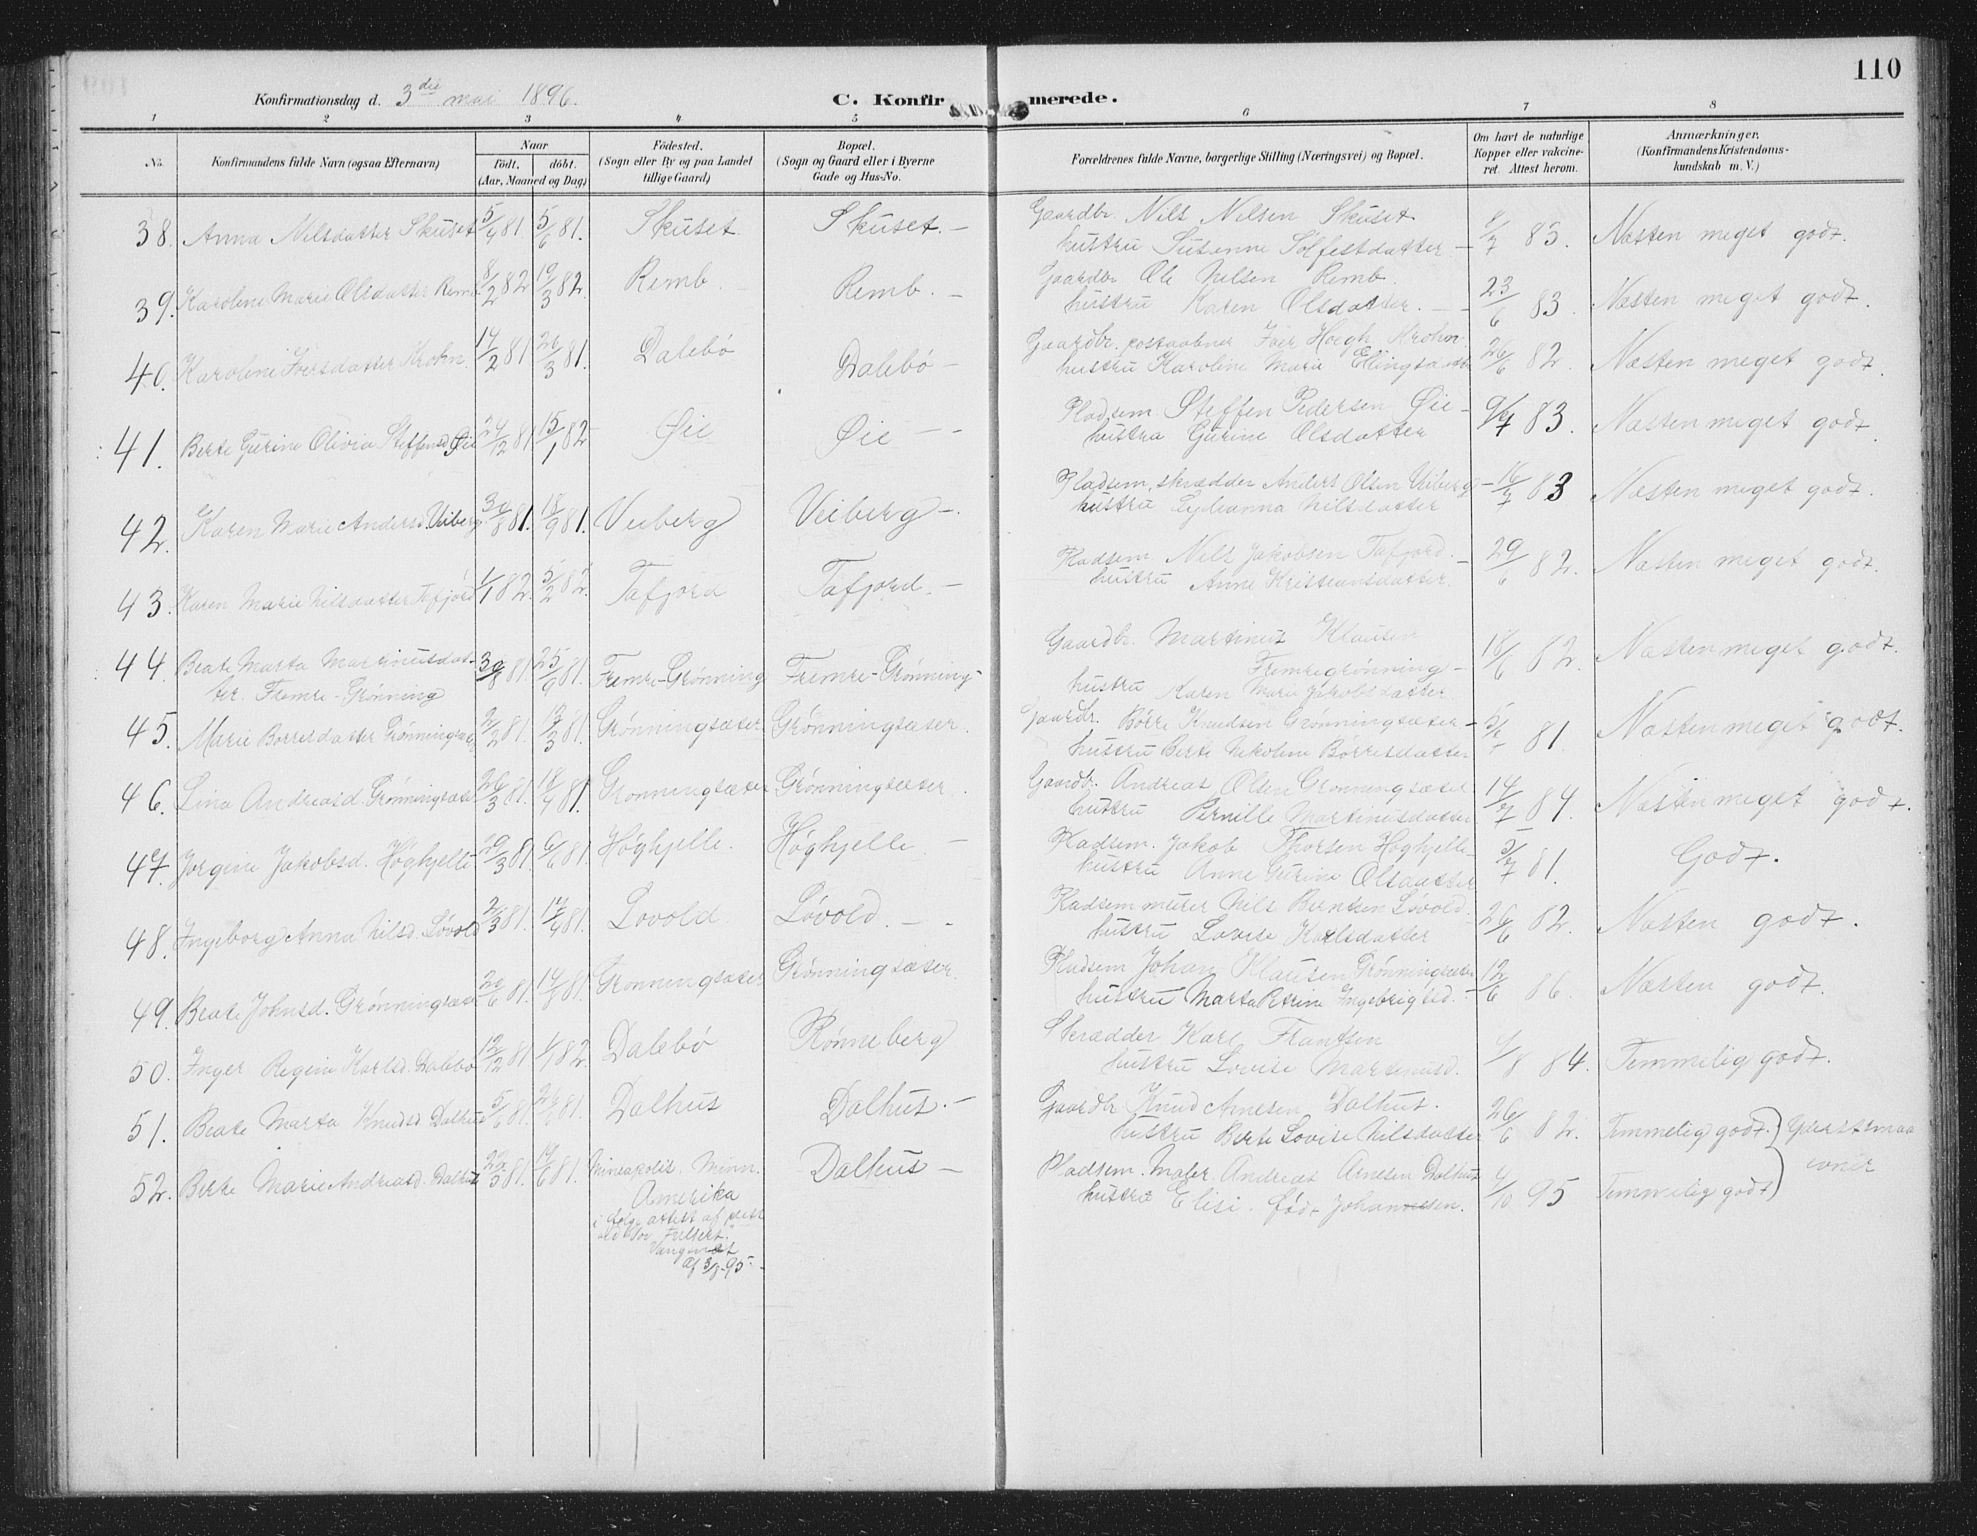 110
Konfirmationsdag d. 3die mai 1896.
C. Konfirmerede.
1 2 3 4 5 6 7 8
No.
Konfirmandens fulde Navn (ogsaa Efternavn)
Naar
födt. döbt.
(Aar, Maaned og Dag)
Födested.
(Sogn eller By og paa Landet
tillige Gaard)
Bopæl.
(Sogn og Gaard eller i Byerne
Gade og Hus-No.
Forældrenes fulde Navne, borgerlige Stilling (Næringsvei) og Bopæl.
Om havt de naturlige
Kopper eller vakcine-
ret. Attest herom.
Anmærkninger.
(Konfirmandens Kristendoms-
kundskab m. V.)
38. Anna Nilsdatter Skuset 5/4 81 5/6 81. Skuset Skuset. — Gaardbr. Nils Nilsen Skuset 83. Næsten meget godt.
hustru Susanne Solfestdatter —
39. Karoline Marie Olsdatter Remb 8/2 82 19/3 82 Remb. Remb. — Gaardbr Ole Nilsen Remb. 23/6 83. Næsten meget godt.
hustru Karen Olsdatter. —
40. Karoline Iversdatter Krohn. 14/2 81 26/3 81. Dalebö Dalebö — Gaardbr. postaabner Iver Høegh Krohn 26/6 82. Næsten meget godt.
hustru Karoline Marie Ellingsdatter
41. Berte Gurine Olivia Steffensd Øie 24/12 81 15/1 82 Øie Øie — Pladsem. Steffen Pedersen Øie — 83. Næsten meget godt.
hustru Gurine Olsdatter
42. Karen Marie Andersd. Veiberg 30/8 81. 18/9 81. Veiberg Veiberg —. Pladsem, skrædder Anders Olsen Veiberg — 16/7 83 Næsten meget godt.
hustru Nilsdatter
43. Karen Marie Nilsdatter Tafjord 1/1 82. 5/2 82. Tafjord Tafjord. — Pladsem. Nils Jakobsen Tafjord. — 29/6 82. Næsten meget godt.
hustru Anne Kristiansdatter.
44. Beate Marta Martinusdat- 30/8 81. 25/9 81. Fremre-Grönning Fremre-Grönning — Gaardbr. Martinus Klausen 18/6 82. Næsten meget godt.
ter Fremre-Grönning Fremregrönning —
hustru Karen Marie Jakobsdatter
45. Marie Børresdatter Grönningsæter 2/2 81. 13/3 81. Grönningsæter Grönningsæter. Gaardbr. Børre Knudsen Grönningsæter — 81. Næsten meget godt.
hustru Berte Nikoline Børresdatter
46. Lina Andreasd. Grönningsæter 26/3 81. 18/4 81. Gronningsæter Grönningsæter. Gaardb. Andreas Olsen Gronningsæter 14/7 84. Næsten meget godt.
hustru Pernille Martinusdatter
47. Jorgine Jakobsd. Höghjelle 29/3 81. 6/6 81. Höghjelle. Höghjelle — Pladsem. Jakob Thorsen Höghjelle 5/7 81. Godt.
hustru Anne Gurine Olsdatter
48. Ingeborg Anna Nilsd. Lövold 2/3 81. 17/4 81. Lovold Lövold. — Pladsem murer Nils Berntsen Lövold. 26/6 82. Næsten godt.
hustru Lovise Karlsdatter
49. Beate Johnsd. Grönningsæter 81. 81. Gronningsæter Grönningsæter. Pladsem Johan Klausen Grönningsæter 12/6 86. Næsten godt.
hustru Marta Petrine Ingebrigtsd. —
50. Inger Regine Karlsd. Dalebö 12/12 81 82. Dalebö Rönneberg Skrædder Karl Frantsen 84. Temmelig godt.
hustru Lovise Martinusd.
51. Beate Marta Knudsd Dalhus 5/6 81. 26/6 81. Dalhus Dalhus. — Gaardbr Knud Arnesen Dalhus. 26/6 82. Temmelig godt.
hustru Berte Lovise Nilsdatter
52. Berte Marie Andreasd. Dalhus 81. 81. Mineapolis. Minn. Dalhus — Pladsem. Maler Andreas Arnesen Dalhus 4/10 95 Temmelig godt
Amerika hustru Elisi. født Johannesen.
yderst smaa
evner
i følge attest af
Vangsnæs
af 3/8-95 —